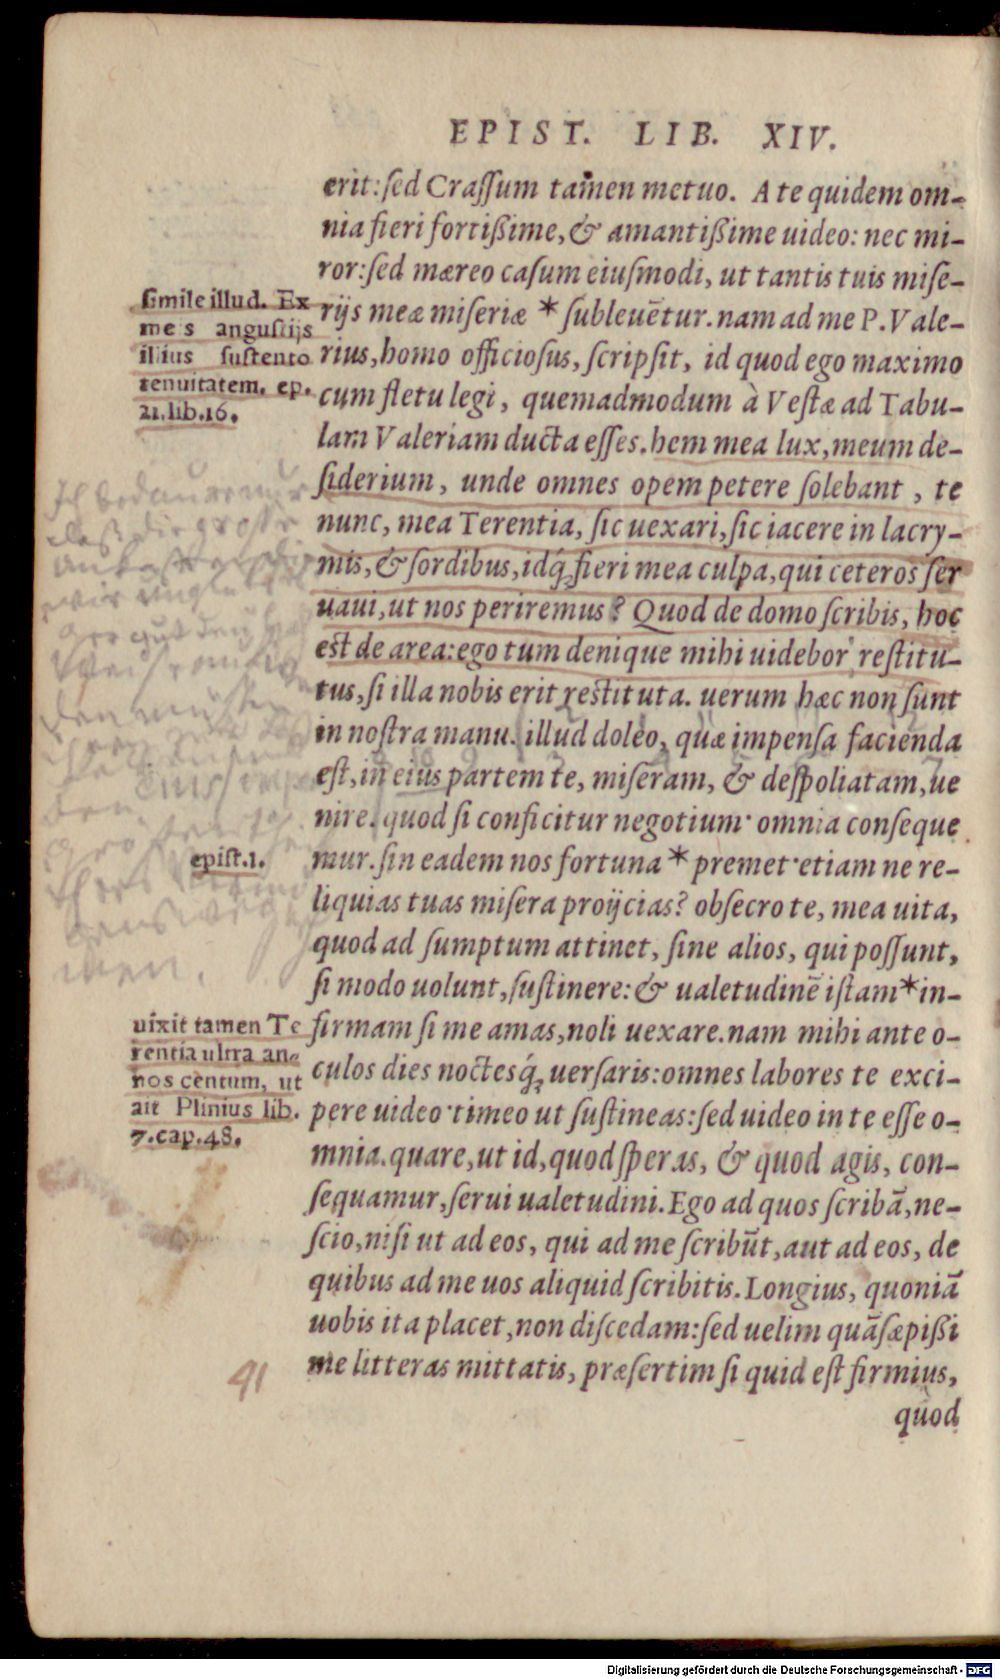 EPIST. LIB. XIV.
erit:ſed Craſſum tamen metuo. A te quidem om-
nia fieri fortißime, & amantißime uideo: nec mi-
ror:ſed mæreo caſum eiuſmodi, ut tantis tuis miſe-
rijs meæ miſeriæ * ſubleuētur. nam ad me P. Vale-
rius, homo officioſus, ſcripſit, id quod ego maximo
cum fletu legi, quemadmodum à Veſtæ ad Tabu-
lam Valeriam ducta eſſes. hem mea lux, meum de-
ſiderium, unde omnes opem petere ſolebant, te
nunc, mea Terentia, ſic uexari, ſic iacere in lacry-
mis, & ſordibus, idq́; fieri mea culpa, qui ceteros ſer
uaui, ut nos periremus? Quod de domo ſcribis, hoc
eſt de area: ego tum denique mihi uidebor reſtitu-
tus, ſi illa nobis erit reſtituta. uerum hæc non ſunt
in noſtra manu. illud doleo, quæ impenſa facienda
eſt, in eius partem te, miſeram, & deſpoliatam, ue
nire. quod ſi conficitur negotium· omnia conſeque
mur. ſin eadem nos fortuna * premet· etiam ne re-
liquias tuas miſera proijcias? obſecro te, mea uita,
quod ad ſumptum attinet, ſine alios, qui poſſunt,
ſi modo uolunt, ſuſtinere: & ualetudinē iſtam * in-
firmam ſi me amas, noli uexare. nam mihi ante o-
culos dies noctesq́; uerſaris: omnes labores te exci-
pere uideo· timeo ut ſuſtineas: ſed uideo in te eſſe o-
mnia. quare, ut id, quod ſperas, & quod agis, con-
ſequamur, ſerui ualetudini. Ego ad quos ſcribā, ne-
ſcio, niſi ut ad eos, qui ad me ſcribūt, aut ad eos, de
quibus ad me uos aliquid ſcribitis. Longius, quoniā
uobis ita placet, non diſcedam: ſed uelim quāſæpißi
me litteras mittatis, præſertim ſi quid eſt firmius,
quod
ſimile illud. Ex
meis anguſtijs
illius ſuſtento
tenuitatem. ep.
21. lib. 16.
Ich
die
epiſt. 1.
uixit tamen Te
rentia ultra an-
nos centum, ut
ait Plinius lib.
7. cap. 48.
91
Digitalisierung gefördert durch die Deutsche Forschungsgemeinschaft - DFG